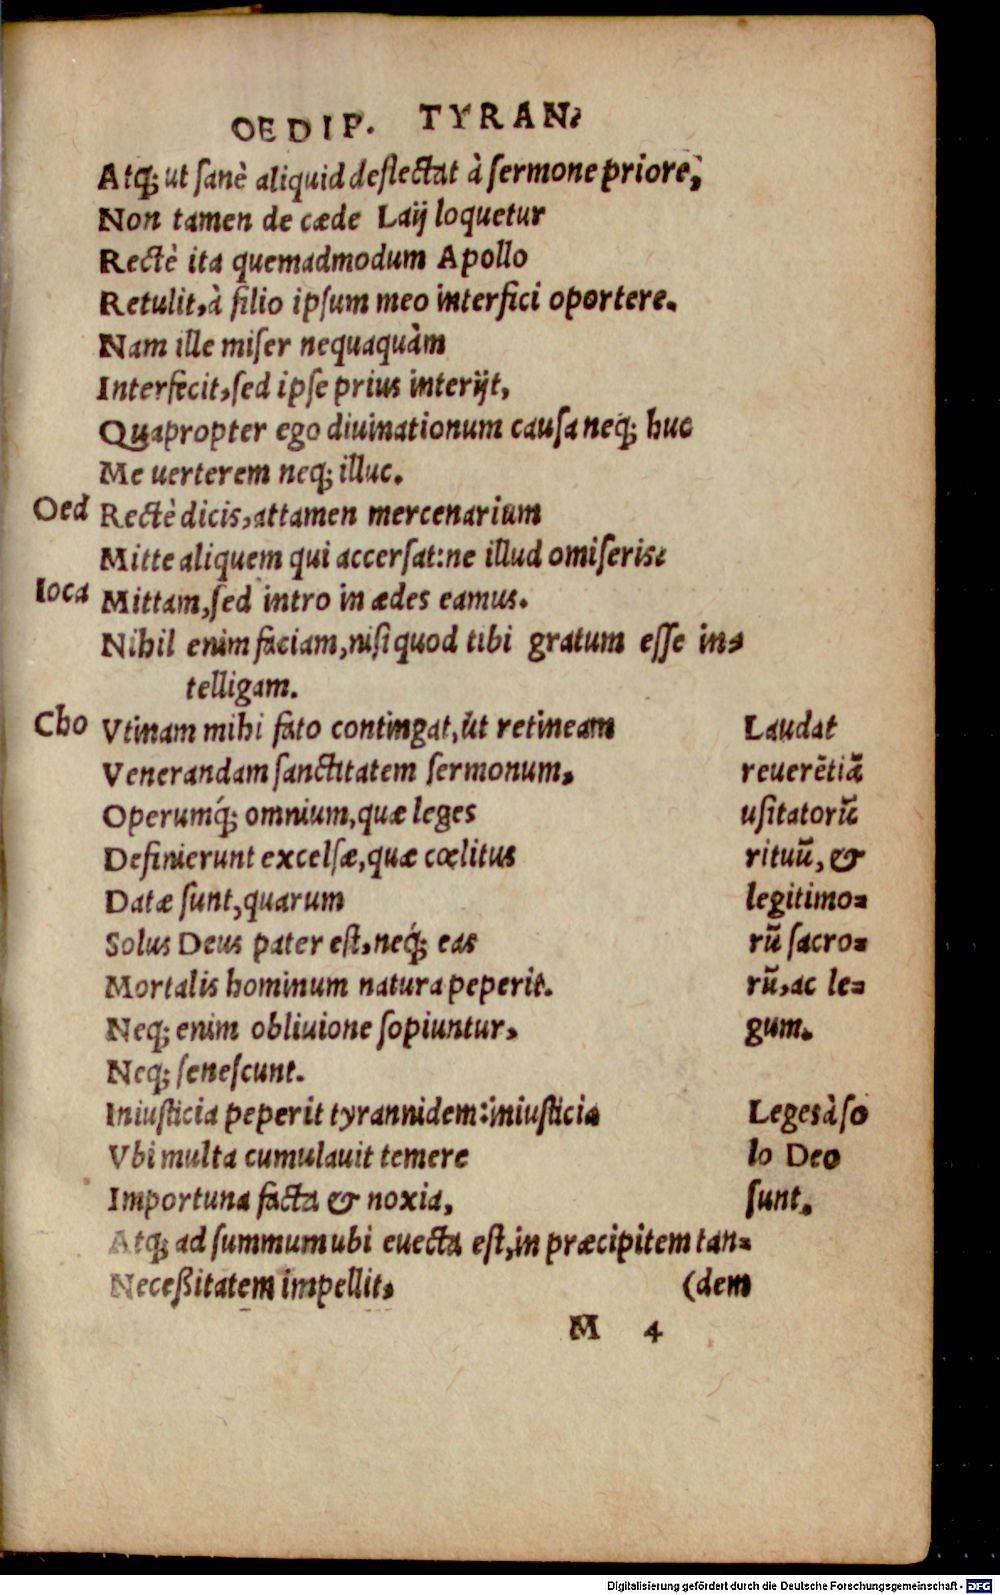 OEDIP. TYRAN.
Atq; ut sanè aliquid deflectat à sermone priore,
Non tamen de cæde Laij loquetur
Rectè ita quemadmodum Apollo
Retulit, à filio ipsum meo interfici oportere.
Nam ille miser nequaquàm
Interfecit, sed ipse prius interijt,
Quapropter ego diuinationum causa neq; huc
Me uerterem neq; illuc.
Oed Rectè dicis, attamen mercenarium
Mitte aliquem qui accersat: ne illud omiseris:
Ioca Mittam, sed intro in ædes eamus.
Nihil enim faciam, nisi quod tibi gratum esse in-
telligam.
Cho Vtinam mihi fato contingat, ut retineam
Venerandam sanctitatem sermonum,
Operumq́; omnium, quæ leges
Definierunt excelsæ, quæ cœlitus
Datæ sunt, quarum
Solus Deus pater est, neq́; eas
Mortalis hominum natura peperit.
Neq; enim obliuione sopiuntur,
Neq; senescunt.
Iniusticia peperit tyrannidem: iniusticia
Vbi multa cumulauit temere
Importuna facta & noxia,
Atq; ad summum ubi euecta est, in præcipitem tan-
Neceßitatem impellit, (dem
Laudat
reuerẽtiã
usitatorũ
rituũ, &
legitimo-
rũ sacro-
rũ, ac le-
gum.
Leges à so
lo Deo
sunt.
M 4
Digitalisierung gefördert durch die Deutsche Forschungsgemeinschaft - DFG